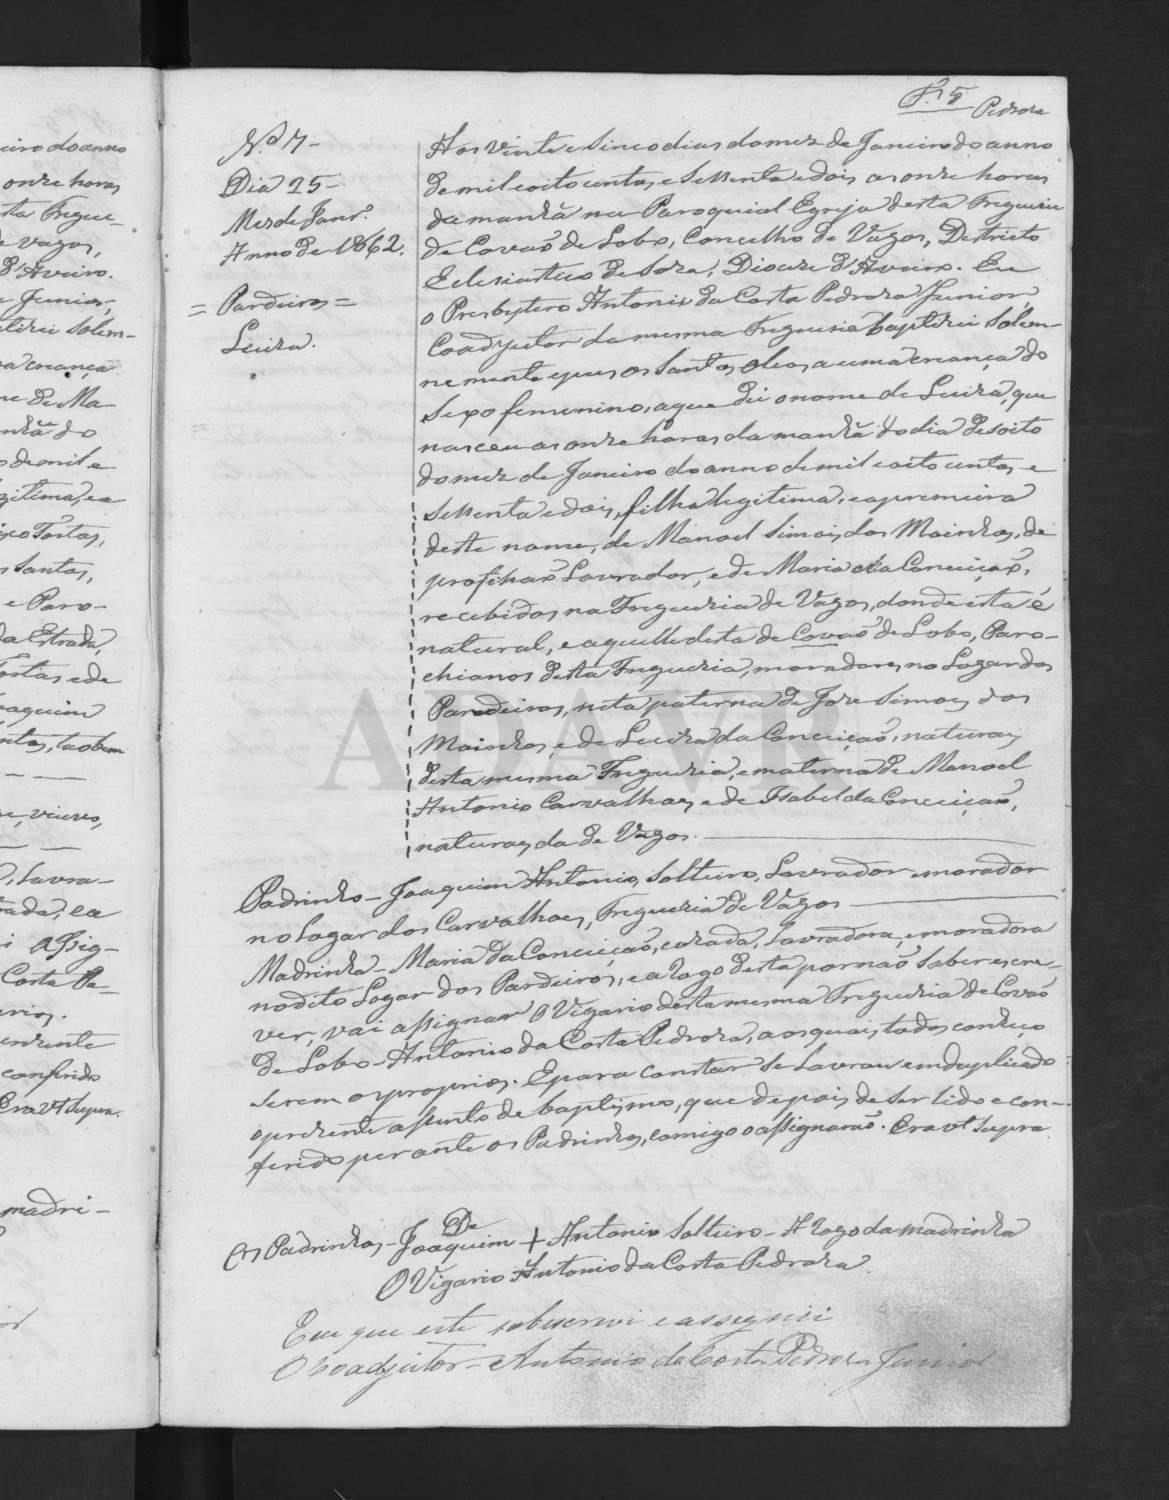 Fl. 5 Pedroza
N.º 7-
Dia 25-
Mez de Janr.º
Anno de 1862.
= Pardeiros =
Luiza.
Aos vinte e Sinco dias do mez de Janeiro do anno
de mil e oito centos e Sessenta e dois, as onze horas
da manhã na Paroquial Egreja desta Freguezia
de Covaõ de Lobo, Concelho de Vagos, Destricto
Eclesiastico de Soza, Diocese d'Aveiro. Eu
o Presbytero Antonio da Costa Pedroza Junior,
Coadjutor da mesma Freguesia baptizei Solem-
nemente e puz os Santos oleos a uma creança do
Sexo femenino, a que dei o nome de Luiza, que
nasceu as onze horas da manhã do dia desoito
do mez de Janeiro do anno de mil e oito centos e
Sessenta e dois, filha legitima, e a premeira
deste nome, de Manoel Simois dos Moinhos, de
profissaõ Lavrador, e de Maria da Conceiçaõ,
recebidos na Freguezia de Vagos, donde esta é
natural, e aquelle desta de Covaõ de Lobo, Paro-
chianos desta Freguezia, moradores no Logar dos
Paredeiros, neta paterna de Joze Simoes dos
Moinhos, e de Luiza da Conceiçaõ, naturaes
desta mesma Freguezia, e materna de Manoel
Antonio Carvalhaes, e de Isabel da Conceiçaõ,
naturaes da de Vagos.
Padrinho - Joaquim Antonio, Solteiro, Lavrador, morador
no Logar dos Carvalhaes, Freguezia de Vagos
Madrinha - Maria da Conceiçaõ, cazada, Lavradora, e moradora
no dito Logar dos Pardeiros, e a rogo desta por naõ Saber escre-
ver, vai assignar O Vigario desta mesma Freguezia de Covaõ
de Lobo - Antonio da Costa Pedroza, aos quais todos conheço
serem os proprios. E para constar se Lavrou em duplicado
o prezente assento de baptismo, que depois de ser lido e con-
ferido perante os Padrinhos, comigo o assignaraõ. Era vt supra.
De
Os Padrinhos - Joaquim + Antonio Solteiro - A rogo da madrinha
O Vigario Antonio da Costa Pedroza.
Eu que este sobscrevi e assegnei
O Coadjutor - Antonio da Costa Pedroza Junior
ADAVR